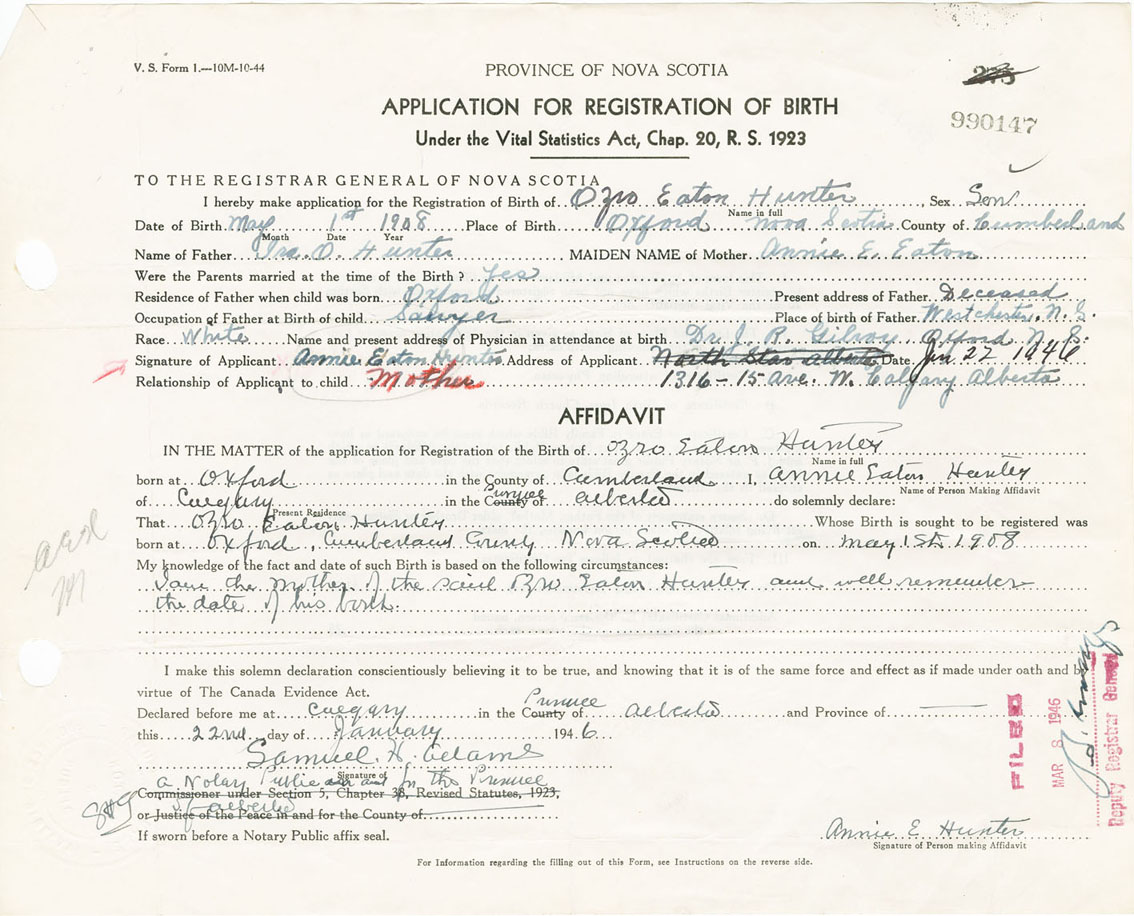 V. S. Form 1.—10M-10-44
PROVINCE OF NOVA SCOTIA
275
APPLICATION FOR REGISTRATION OF BIRTH
990147
Under the Vital Statistics Act, Chap. 20, R. S. 1923
TO THE REGISTRAR GENERAL OF NOVA SCOTIA
I hereby make application for the Registration of Birth of Ozro Eaton Hunter, Sex Son
Name in full
Date of Birth May 1st 1908 Place of Birth Oxford Nova Scotia County of Cumberland
Month Date Year
Name of Father Ira O. Hunter MAIDEN NAME of Mother Annie E. Eaton
Were the Parents married at the time of the Birth? Yes
Residence of Father when child was born Oxford Present address of Father Deceased
Occupation of Father at Birth of child Sawyer Place of birth of Father Westchester, N. S.
Race White Name and present address of Physician in attendance at birth Dr. J. R. Gilroy Oxford N. S.
Signature of Applicant Annie Eaton Hunter Address of Applicant North Star Alberta Date Jan 22 1946
Relationship of Applicant to child Mother 1316 - 15 Ave. W. Calgary Alberta
AFFIDAVIT
IN THE MATTER of the application for Registration of the Birth of Ozro Eaton Hunter
Name in full
born at Oxford in the County of Cumberland I, Annie Eaton Hunter
Name of Person Making Affidavit
of Calgary in the County of Province Alberta do solemnly declare:
Present Residence
That Ozro Eaton Hunter Whose Birth is sought to be registered was
born at Oxford, Cumberland County Nova Scotia on May 1st 1908
My knowledge of the fact and date of such Birth is based on the following circumstances:
I am the mother of the said Ozro Eaton Hunter and well remember
the date of his birth.
I make this solemn declaration conscientiously believing it to be true, and knowing that it is of the same force and effect as if made under oath and by
virtue of The Canada Evidence Act.
Province
Declared before me at Calgary in the County of Alberta and Province of
this 22nd day of January 1946
Samuel H. Adams
Signature of
a Notary Public in and for the Province
Commissioner under Section 5, Chapter 38, Revised Statutes, 1923,
of Alberta
or Justice of the Peace in and for the County of
If sworn before a Notary Public affix seal.
Annie E Hunter
Signature of Person making Affidavit
For Information regarding the filling out of this Form, see Instructions on the reverse side.
FILED
MAR 8 1946
Deputy Registrar General